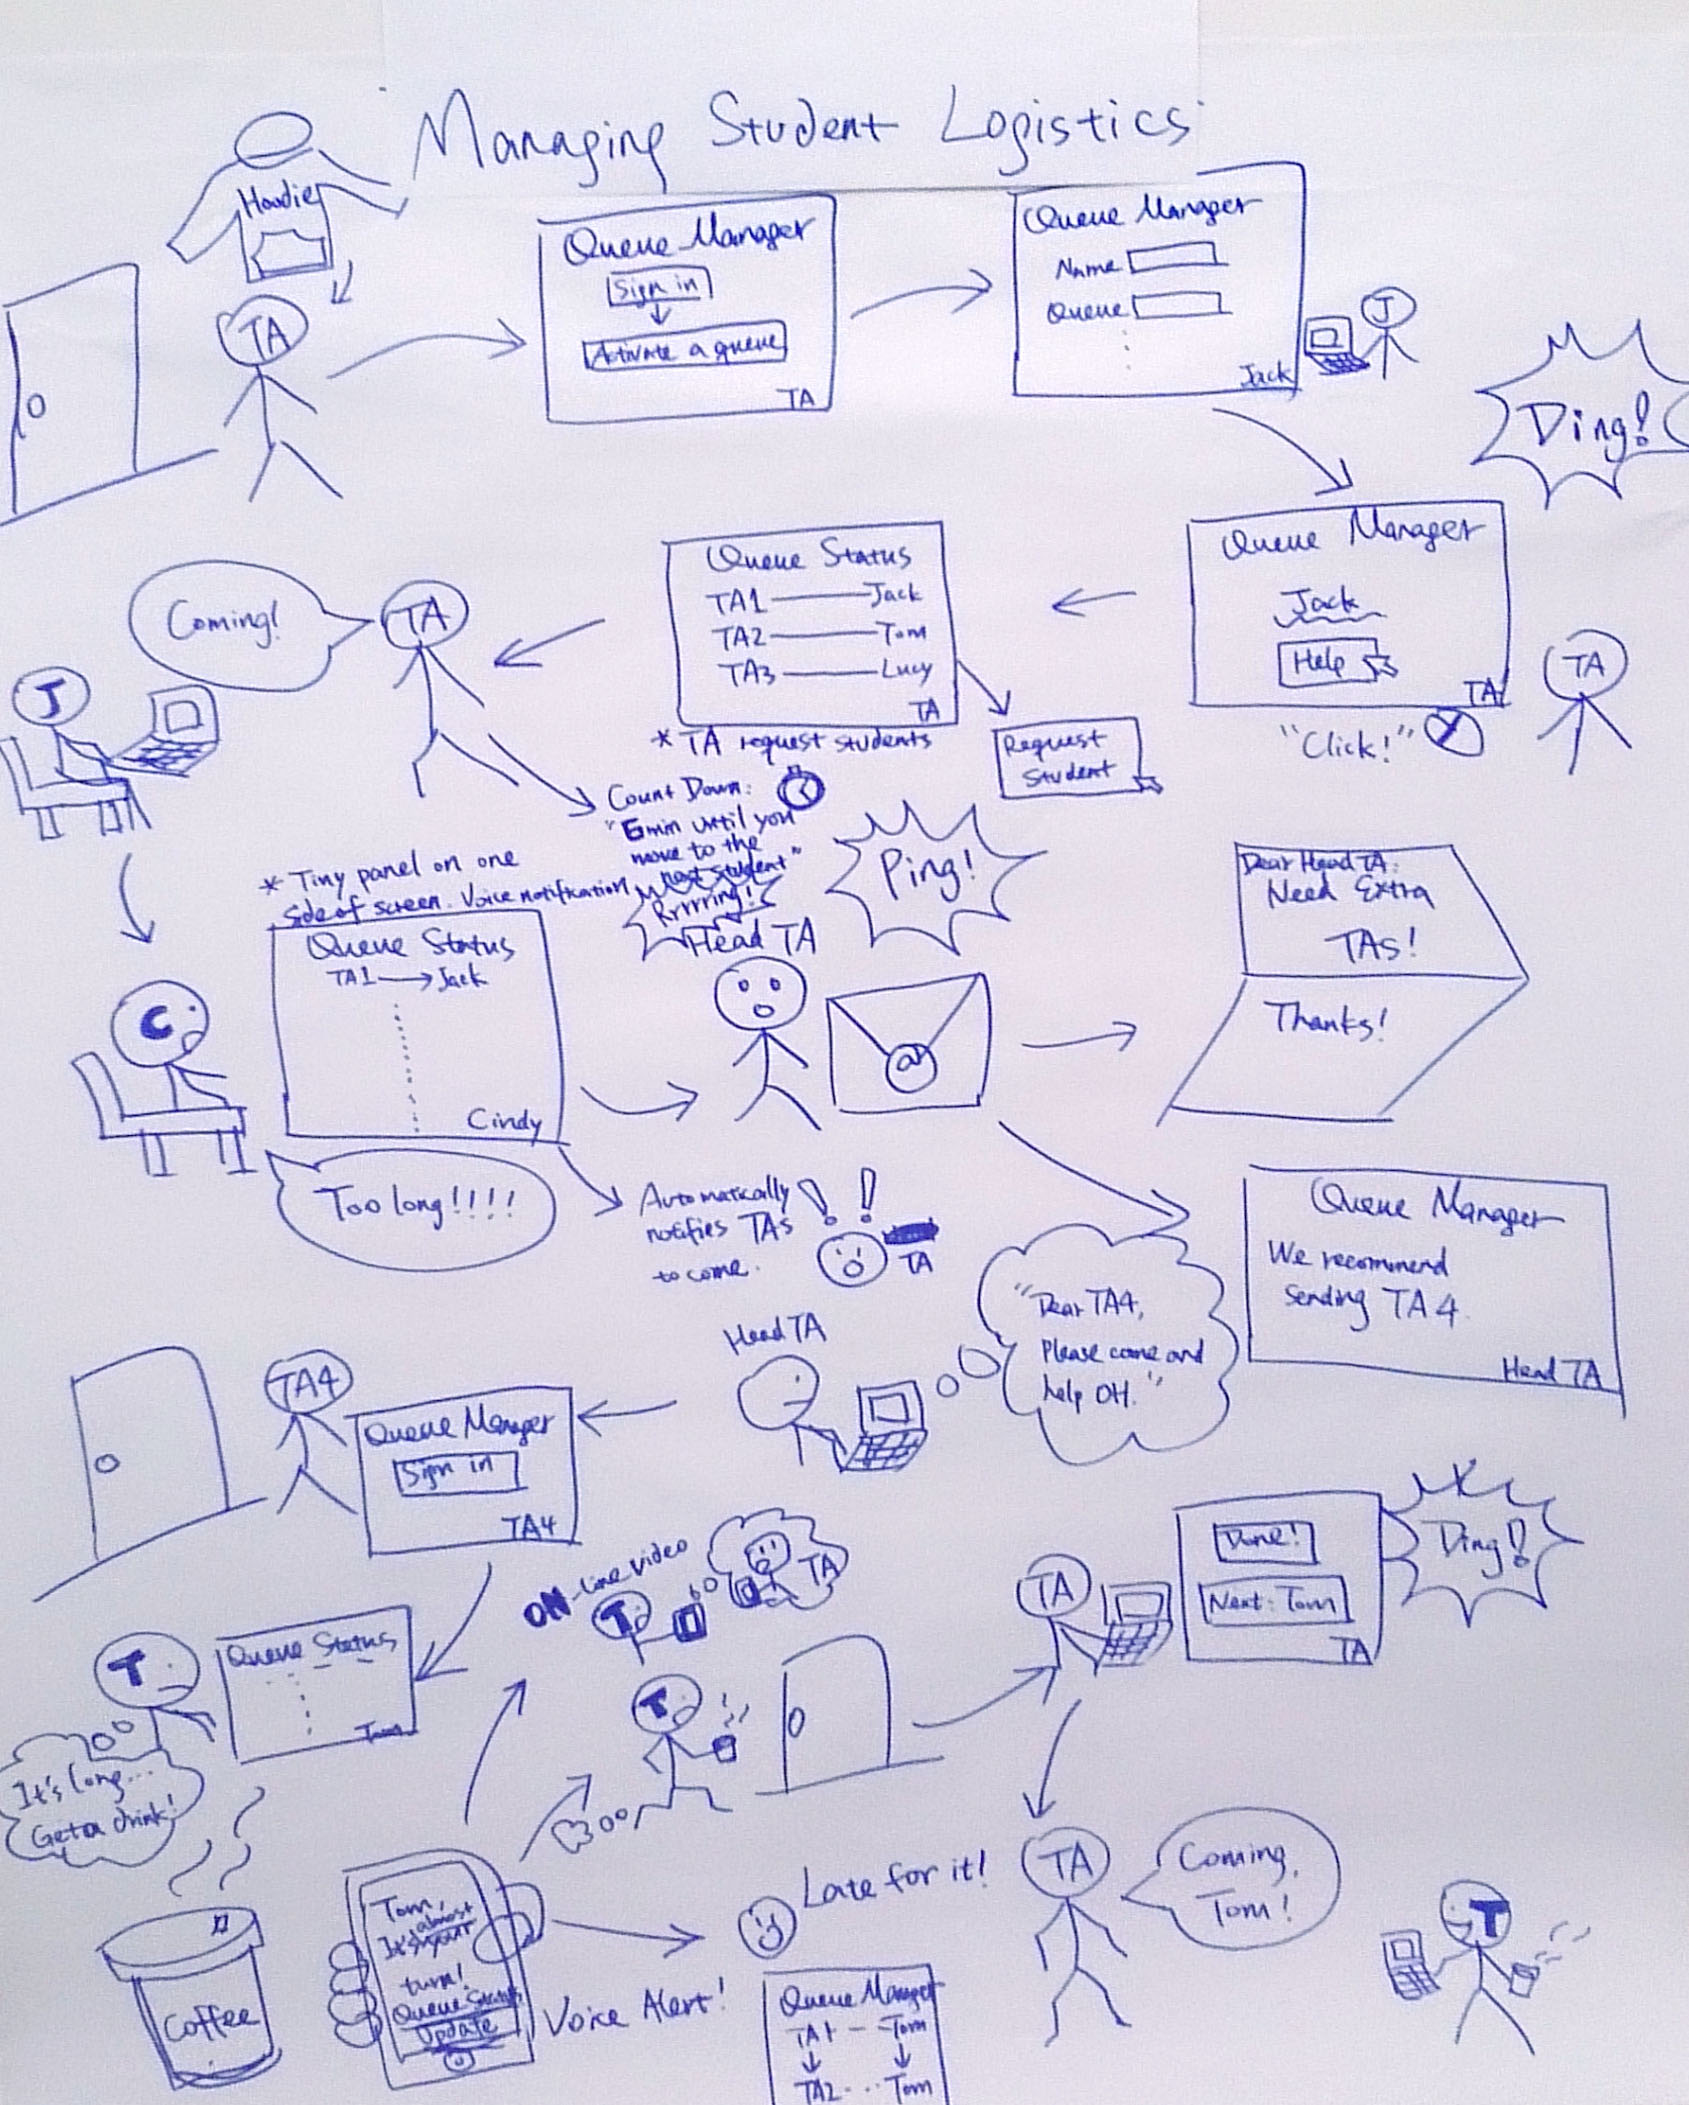 Managing Student Logistics
Hoodie
TA
Queue Manager
Sign in
Activate a queue
TA
Queue Manager
Name
Queue
Jack
J
Ding!
Queue Manager
Jack
Help
TA
"Click!"
TA
Queue Status
TA1 Jack
TA2 Tom
TA3 Lucy
TA
* TA request students
Request
Student
TA
Coming!
J
Count Down:
"5min until you
move to the
next student"
Rrrrring!
* Tiny panel on one
side of screen. Voice notification
Queue Status
TA1 Jack
Cindy
C
Too long!!!!
Automatically
notifies TAs
to come.
!!
TA
Head TA
Ping!
@
Dear Head TA:
Need Extra
TAs!
Thanks!
Queue Manager
We recommend
Sending TA4.
Head TA
Head TA
"Dear TA4,
Please come and
help OH."
TA4
Queue Manager
Sign in
TA4
T
Queue Status
Tom
It's long...
Get a drink!
Coffee
Tom,
It's almost your
turn!
Queue Status
Update
ON-line video
T
TA
T
TA
Done!
Next: Tom
TA
Ding!
Voice Alert!
Late for it!
Queue Manager
TA1 -- Tom
TA2 ... Tom
TA
Coming,
Tom!
T